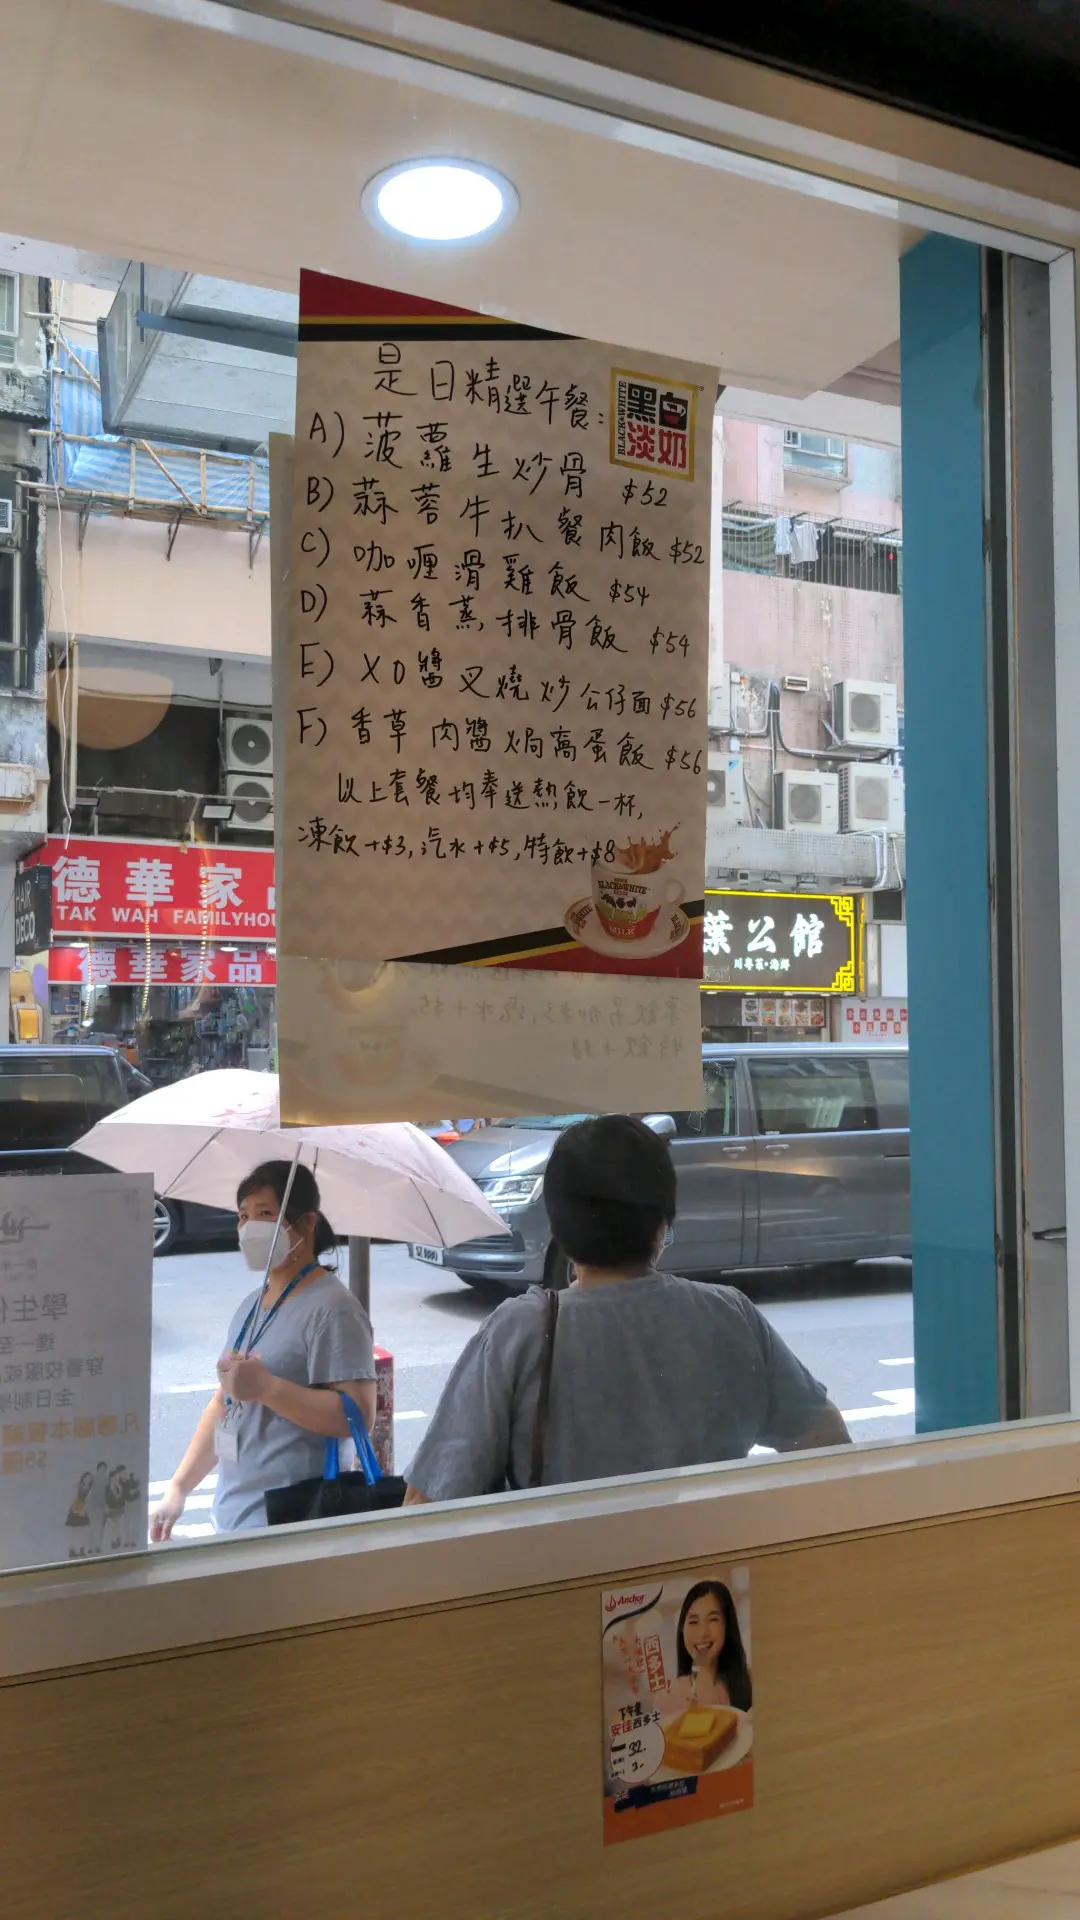 是日精選午餐:
A) 菠蘿生炒骨 $52
B) 蒜蓉牛扒餐肉飯 $52
C) 咖喱滑雞飯 $54
D) 蒜香蒸排骨飯 $54
E) XO醬叉燒炒公仔面 $56
F) 香草肉醬焗窩蛋飯 $56
以上套餐均奉送熱飲一杯,
凍飲+$3, 汽水+$5, 特飲+$8
BLACK&WHITE
黑白
淡奶
BLACK&WHITE
MILK
德華家
TAK WAH FAMILYHOU
德華家品
HAIR
DECO
葉公館
川粵菜·海鮮
學生
穿着校服或
全日制
Anchor
西多士
下午茶
安佳西多士
32.
3-